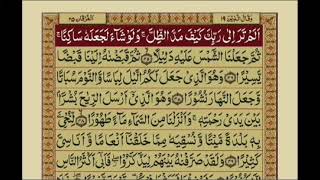 وَقَالَ الَّذِیْنَ ۱۹
الْفُرْقَان ۲۵
اَلَمْ تَرَ اِلٰی رَبِّكَ كَیْفَ مَدَّ الظِّلَّ ۚ وَلَوْ شَآءَ لَجَعَلَهٗ سَاكِنًا ۚ
ثُمَّ جَعَلْنَا الشَّمْسَ عَلَیْهِ دَلِیْلًا ۙ ثُمَّ قَبَضْنٰهُ اِلَیْنَا قَبْضًا
یَّسِیْرًا ۝ وَهُوَ الَّذِیْ جَعَلَ لَكُمُ الَّیْلَ لِبَاسًا وَّالنَّوْمَ سُبَاتًا
وَّجَعَلَ النَّهَارَ نُشُوْرًا ۝ وَهُوَ الَّذِیْۤ اَرْسَلَ الرِّیٰحَ بُشْرًۢا
بَیْنَ یَدَیْ رَحْمَتِهٖ ۚ وَاَنْزَلْنَا مِنَ السَّمَآءِ مَآءً طَهُوْرًا ۙ لِّنُحْیَِۧ
بِهٖ بَلْدَةً مَّیْتًا وَّنُسْقِیَهٗ مِمَّا خَلَقْنَاۤ اَنْعَامًا وَّاَنَاسِیَّ
كَثِیْرًا ۝ وَلَقَدْ صَرَّفْنٰهُ بَیْنَهُمْ لِیَذَّكَّرُوْا ۖ فَاَبٰۤی اَكْثَرُ النَّاسِ